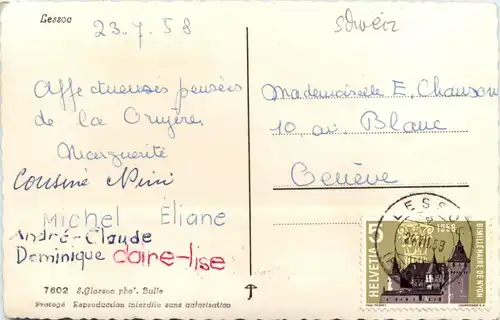 Lessoc
23.7.58
Schweiz
Affectueuses pensées
de la Gruyère.
Marguerite
Cousine Nini
Michel Éliane
André-Claude
Dominique claire-lise
Mademoiselle E. Chauson
10, av. Blanc
Genève
LESSOC
24.VII.58
HELVETIA 5
1958
BIMILLENAIRE DE NYON
7602 S.Glasson phot. Bulle
Protégé Reproduction interdite sans autorisation